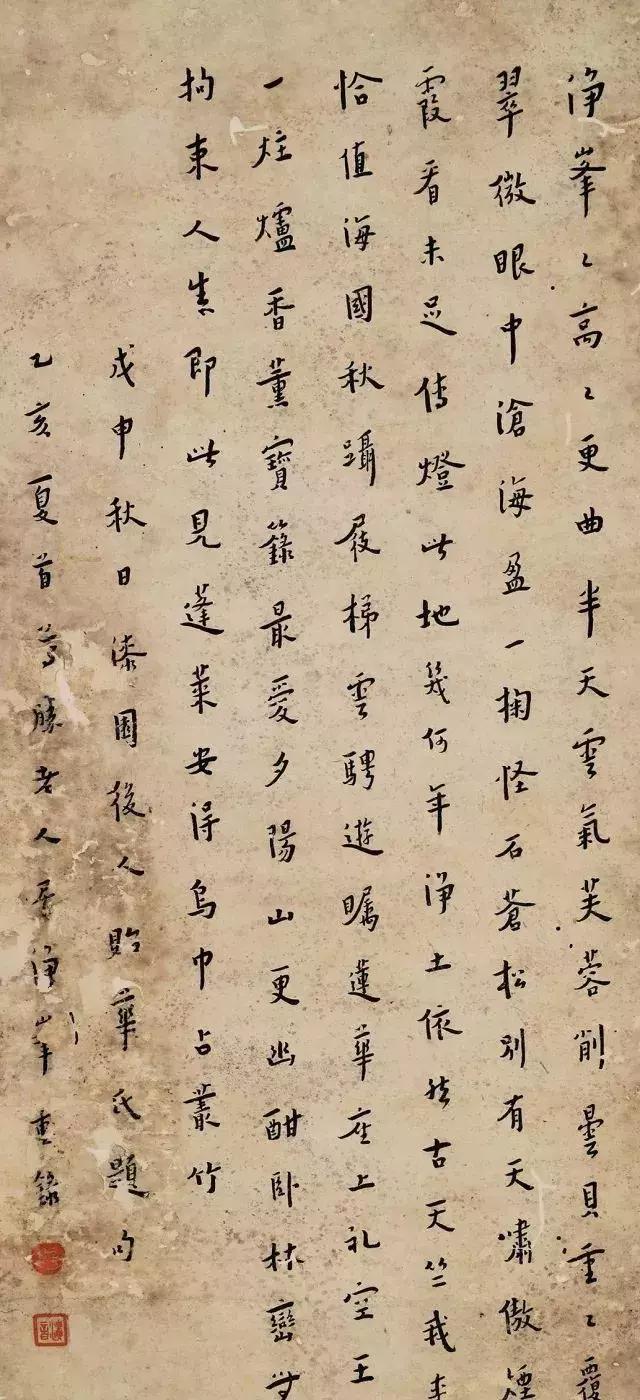 淨峯〻高〻更曲半天雲氣芙蓉削曇貝重〻覆
翠微眼中滄海盈一掬怪石蒼松別有天嘯傲煙
霞看未足傳燈此地幾何年淨土依然古天竺我來
恰值海國秋躡屐梯雲騁遊矚蓮華座上礼空王
一炷爐香薰寶籙最愛夕陽山更幽酣卧林巒無
拘束人生即此見蓬萊安得烏巾占叢竹
戊申秋日漆園後人貽華氏題句
乙亥夏首尊勝老人居淨峯重錄